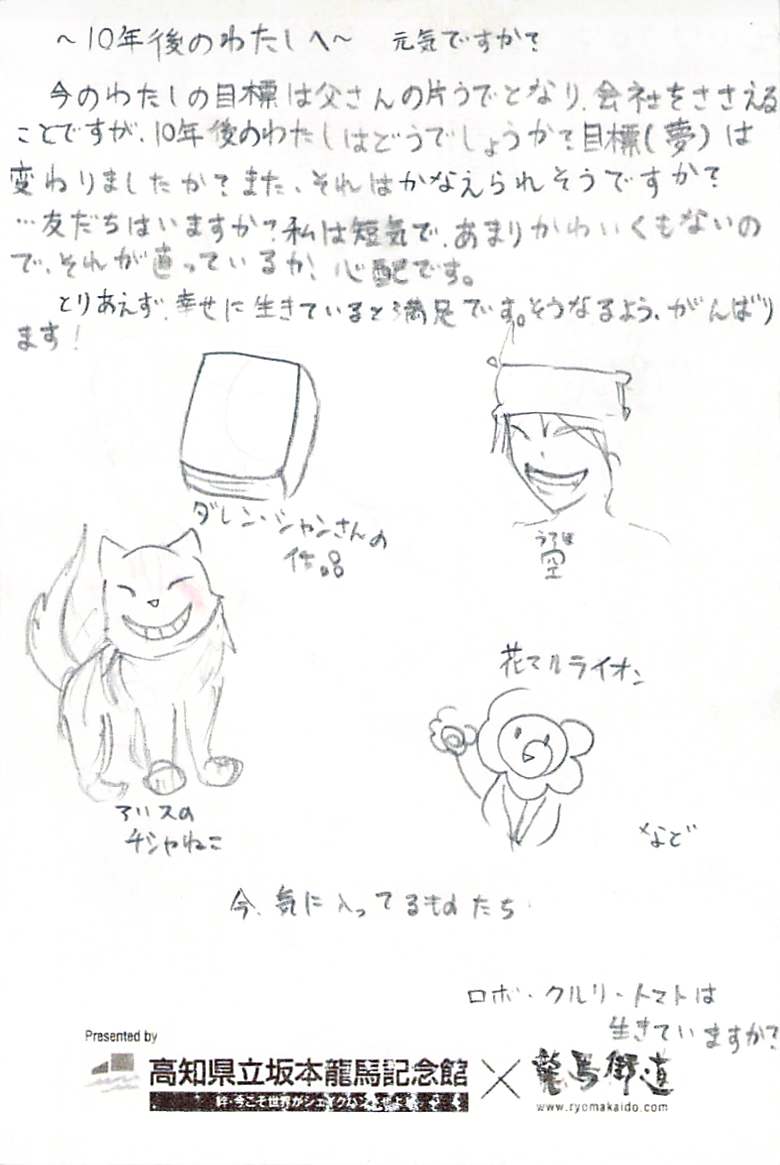 ~10年後のわたしへ~ 元気ですか?
今のわたしの目標は父さんの片うでとなり、会社をささえる
ことですが、10年後のわたしはどうでしょうか?目標(夢)は
変わりましたか?また、それはかなえられそうですか?
…友だちはいますか?私は短気で、あまりかわいくもないの
で、それが直っているか、心配です。
とりあえず、幸せに生きていると満足です。そうなるよう、がんばり
ます!
ダレン・シャンさんの
作品
うつほ
空
花マルライオン
アリスの
チシャねこ
など
今、気に入ってるものたち
ロボ・クルリ・トマトは
生きていますか?
Presented by
高知県立坂本龍馬記念館
×
龍馬街道
絆・今こそ世界がシェイクハンドせよ
www.ryomakaido.com